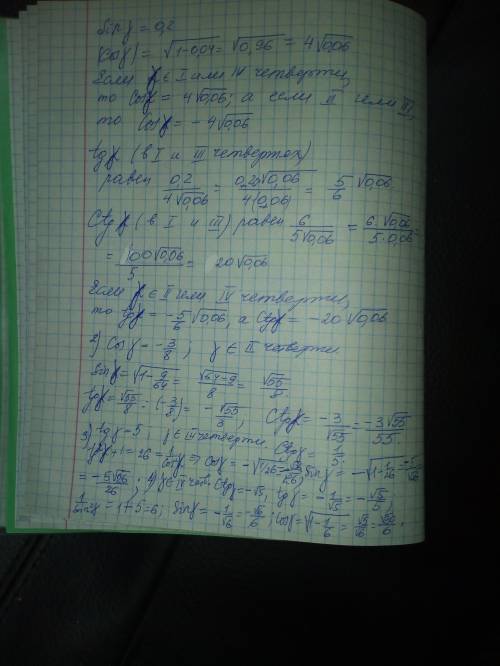 Sin γ = 0,2
|cos γ| = √(1-0,04) = √0,96 = 4√0,06
Если γ ∈ I или IV четверти,
то cos γ = 4√0,06; а если II или III,
то cos γ = -4√0,06
tg γ (в I и III четвертях)
равен 0,2/(4√0,06) = 0,2√0,06/(4(0,06)) = 5/6 √0,06
Ctg γ (в I и III) равен 6/(5√0,06) = 6·√0,06/(5·0,06) =
= 100√0,06/5 = 20√0,06
Если γ ∈ II или IV четверти,
то tg γ = -5/6 √0,06, а Ctg γ = -20√0,06
2) Cos γ = -3/8; γ ∈ II четверти
sin γ = √(1-9/64) = √(64-9)/8 = √55/8
tg γ = √55/8 : (-3/8) = -√55/3; Ctg γ = -3/√55 = -3√55/55
3) tg γ = 5; γ ∈ III четверти. Ctg γ = 1/5;
tg²γ + 1 = 26 = 1/cos²γ ⇒ cos γ = -√(1/26) = Sin γ = -√(1-1/26) =
= -5√26/26; 4) γ ∈ IV четв. Ctg γ = -√5; tg γ = -1/√5 = -√5/5;
1/sin²γ = 1+5=6; Sin γ = -1/√6 = -√6/6; cos γ = √(1-1/6) = √5/√6 = √30/6.